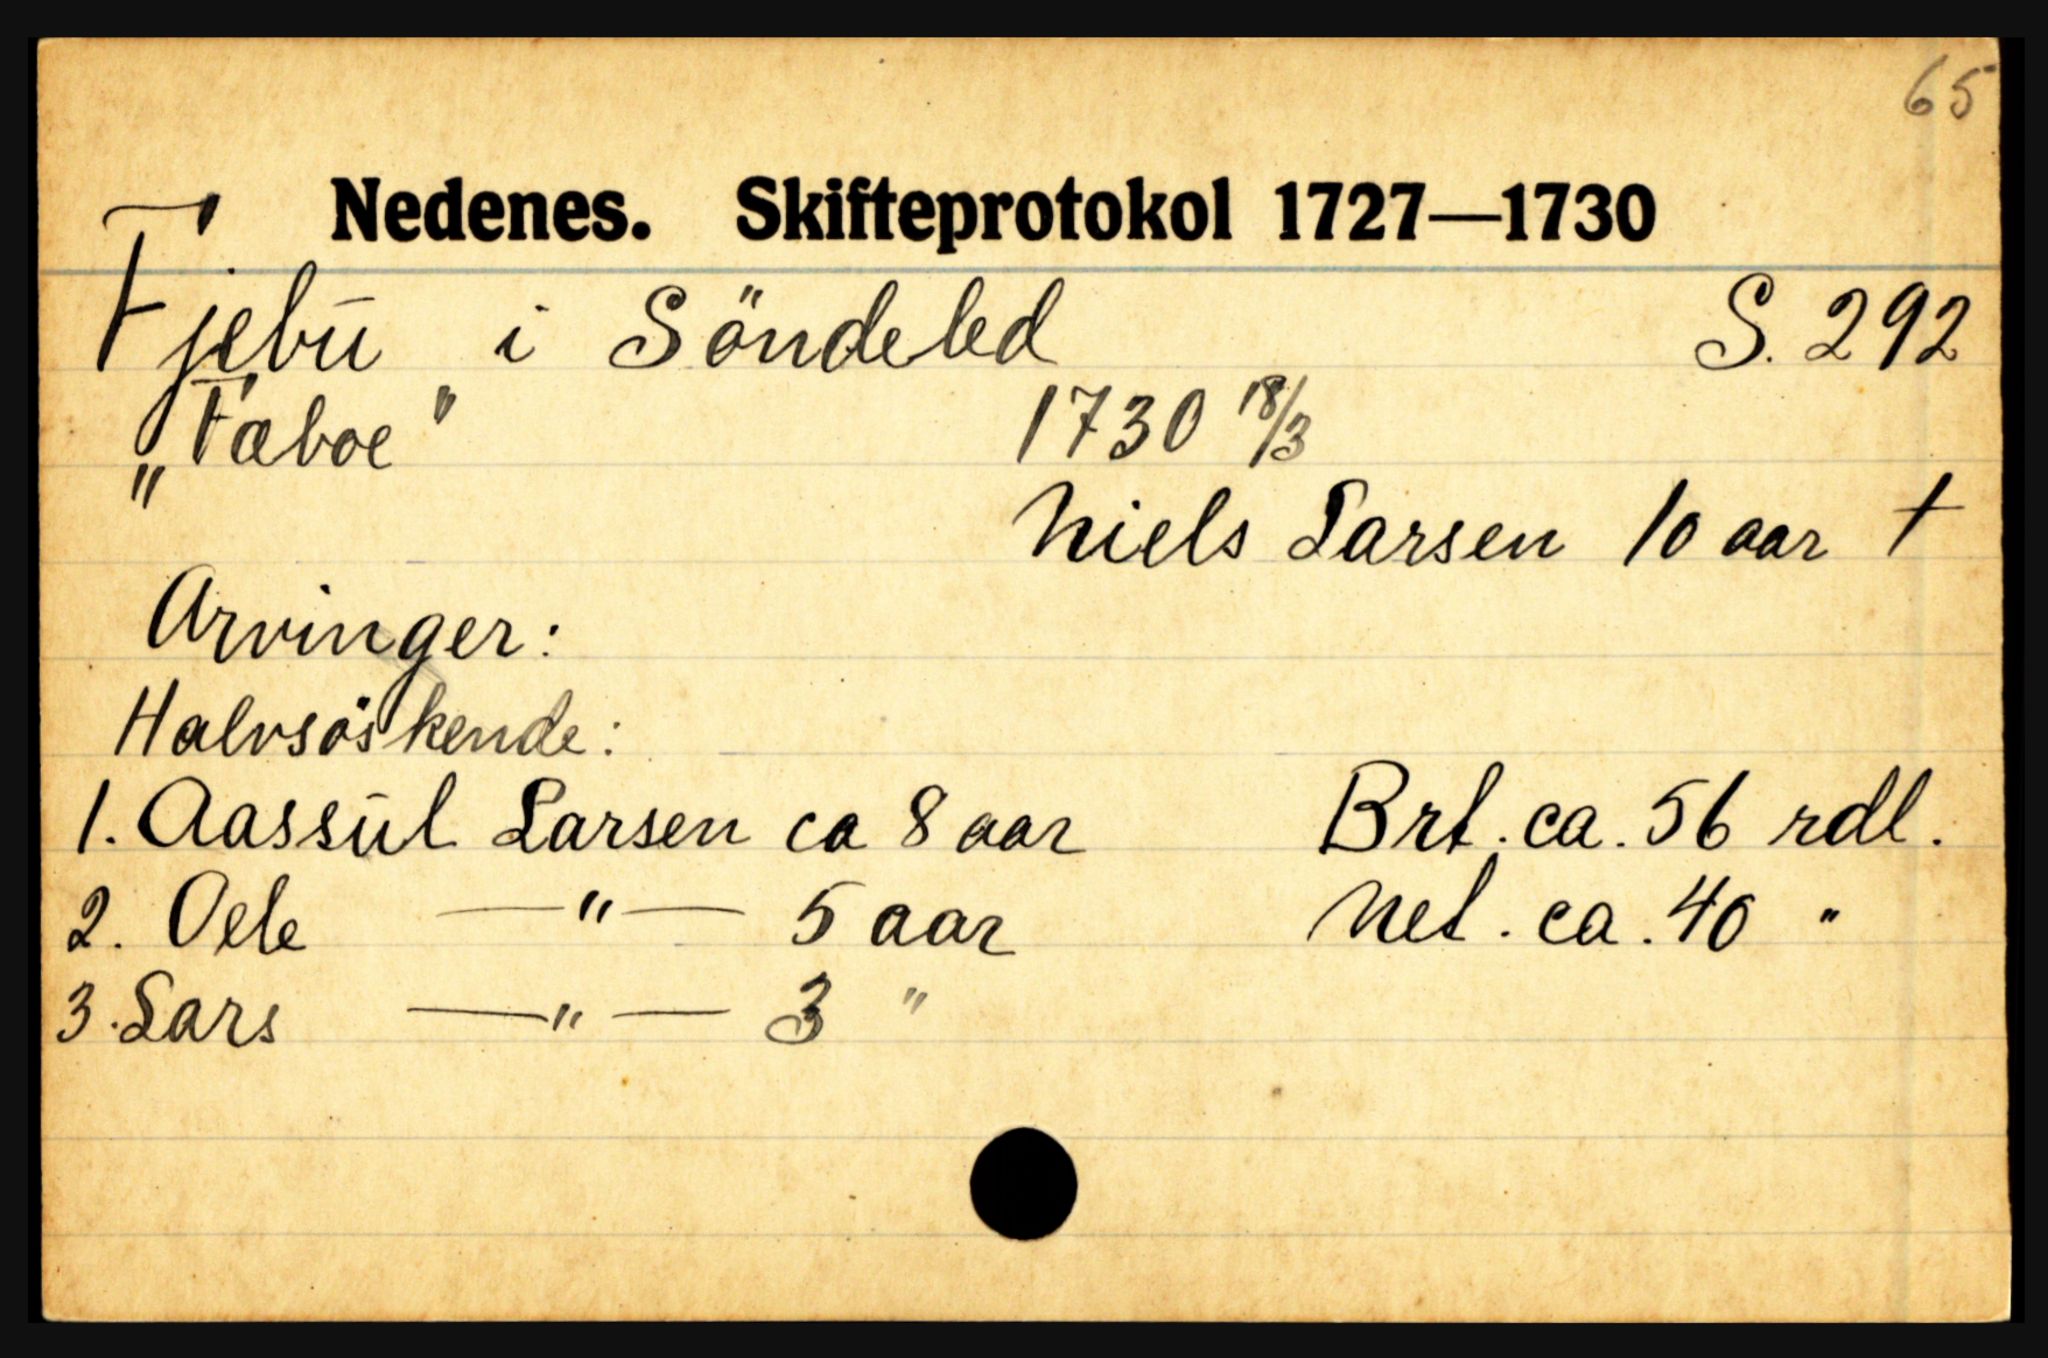 65
Nedenes. Skifteprotokol 1727—1730
Fjebū i Söndeled S. 292
"Fæboe" 1730 18/3
" Niels Larsen 10 aar †
Arvinger:
Halvsöskende:
1. Aassūl Larsen ca 8 aar Brt. ca. 56 rdl.
2. Oele —"— 5 aar Net. ca. 40 "
3. Lars —"— 3 "